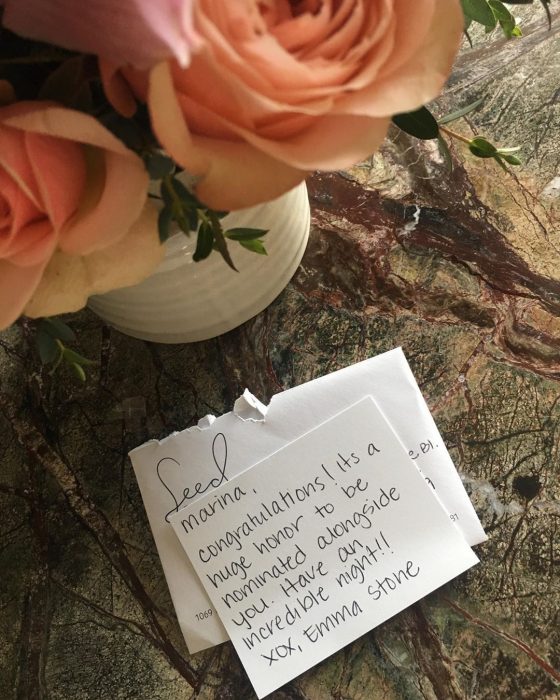 Seed
marina,
congratulations! Its a
huge honor to be
nominated alongside
you. Have an
incredible night!!
xox, Emma Stone
1069